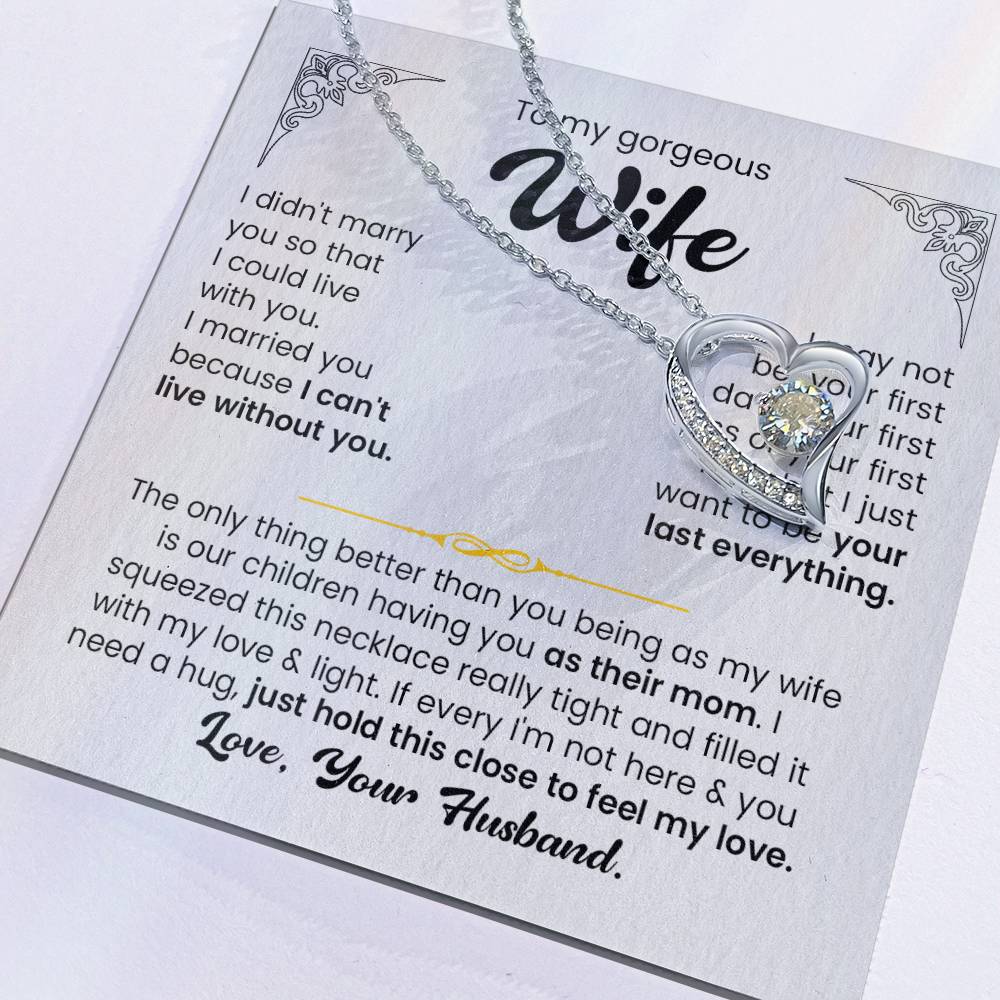 To my gorgeous
Wife
I didn't marry
you so that
I could live
with you.
I married you
because I can't
live without you.
may not
be your first
ur first
ur first
I just
want to be your
last everything.
The only thing better than you being as my wife
is our children having you as their mom. I
squeezed this necklace really tight and filled it
with my love & light. If every I'm not here & you
need a hug, just hold this close to feel my love.
Love, Your Husband.